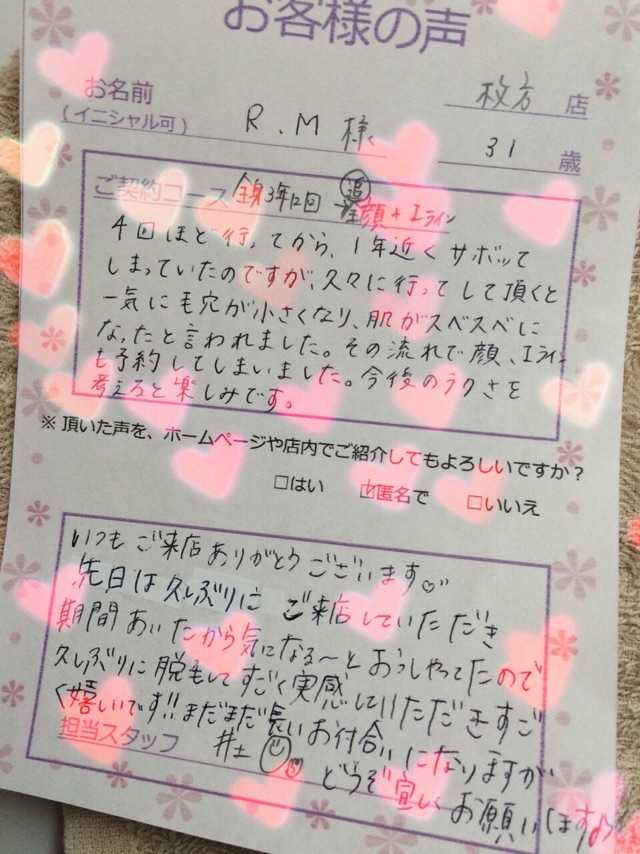 お客様の声
お名前
(イニシャル可)
R.M 様
枚方 店
31 歳
ご契約コース 全身3年12回 追 全顔+Iライン
4回ほど行ってから、1年近くサボッて
しまっていたのですが、久々に行ってして頂くと
一気に毛穴が小さくなり、肌がスベスベに
なったと言われました。その流れで顔、Iライン
も予約してしまいました。今後のラクさを
考えると楽しみです。
※ 頂いた声を、ホームページや店内でご紹介してもよろしいですか?
□はい ☑匿名で □いいえ
いつもご来店ありがとうございます♡
先日は久しぶりに ご来店していただき
期間あいたから気になる〜とおっしゃってたので
久しぶりに脱毛してすごく実感していただきすご
く嬉しいです!!まだまだ長いお付合いになりますが
担当スタッフ 井土
どうぞ宜しくお願いします♪